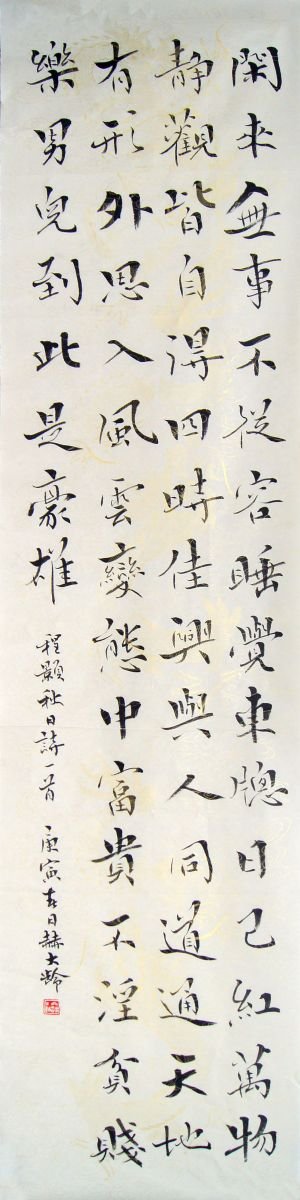 閑來無事不從容睡覺東牕日已紅萬物
静觀皆自得四時佳興與人同道通天地
有形外思入風雲變態中富貴不淫貧賤
樂男兒到此是豪雄
程顥秋日詩一首 庚寅日赫大齡